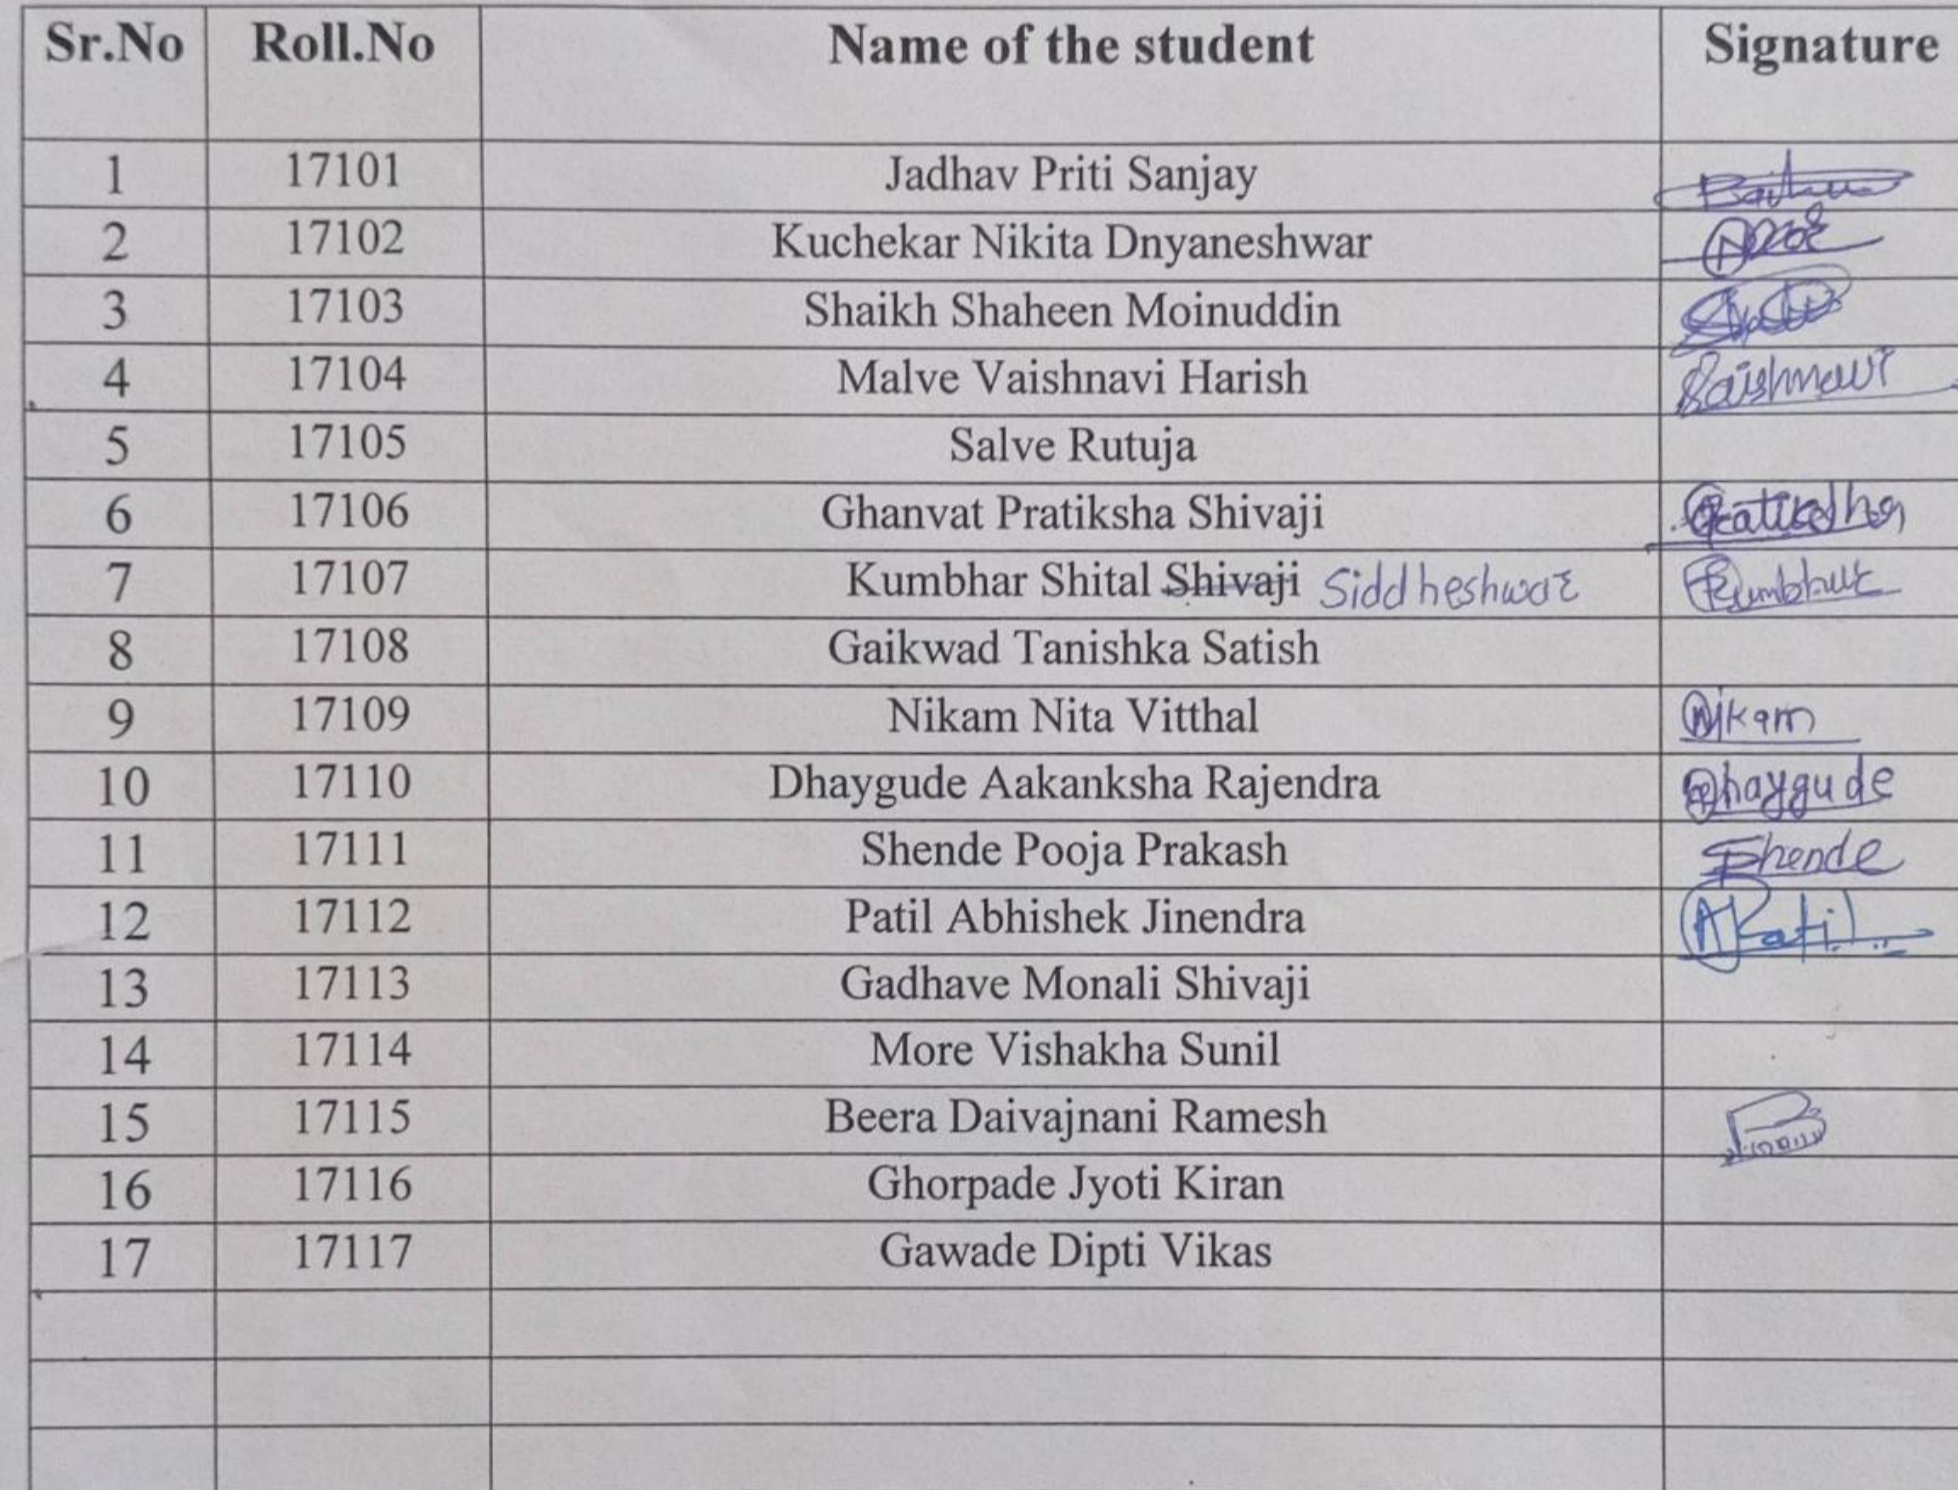 Sr.No Roll.No Name of the student Signature
1 17101 Jadhav Priti Sanjay
2 17102 Kuchekar Nikita Dnyaneshwar
3 17103 Shaikh Shaheen Moinuddin
4 17104 Malve Vaishnavi Harish Vaishnavi
5 17105 Salve Rutuja
6 17106 Ghanvat Pratiksha Shivaji Pratiksha
7 17107 Kumbhar Shital Shivaji Siddheshwar Kumbhar
8 17108 Gaikwad Tanishka Satish
9 17109 Nikam Nita Vitthal Nikam
10 17110 Dhaygude Aakanksha Rajendra Dhaygude
11 17111 Shende Pooja Prakash Shende
12 17112 Patil Abhishek Jinendra APatil
13 17113 Gadhave Monali Shivaji
14 17114 More Vishakha Sunil
15 17115 Beera Daivajnani Ramesh
16 17116 Ghorpade Jyoti Kiran
17 17117 Gawade Dipti Vikas